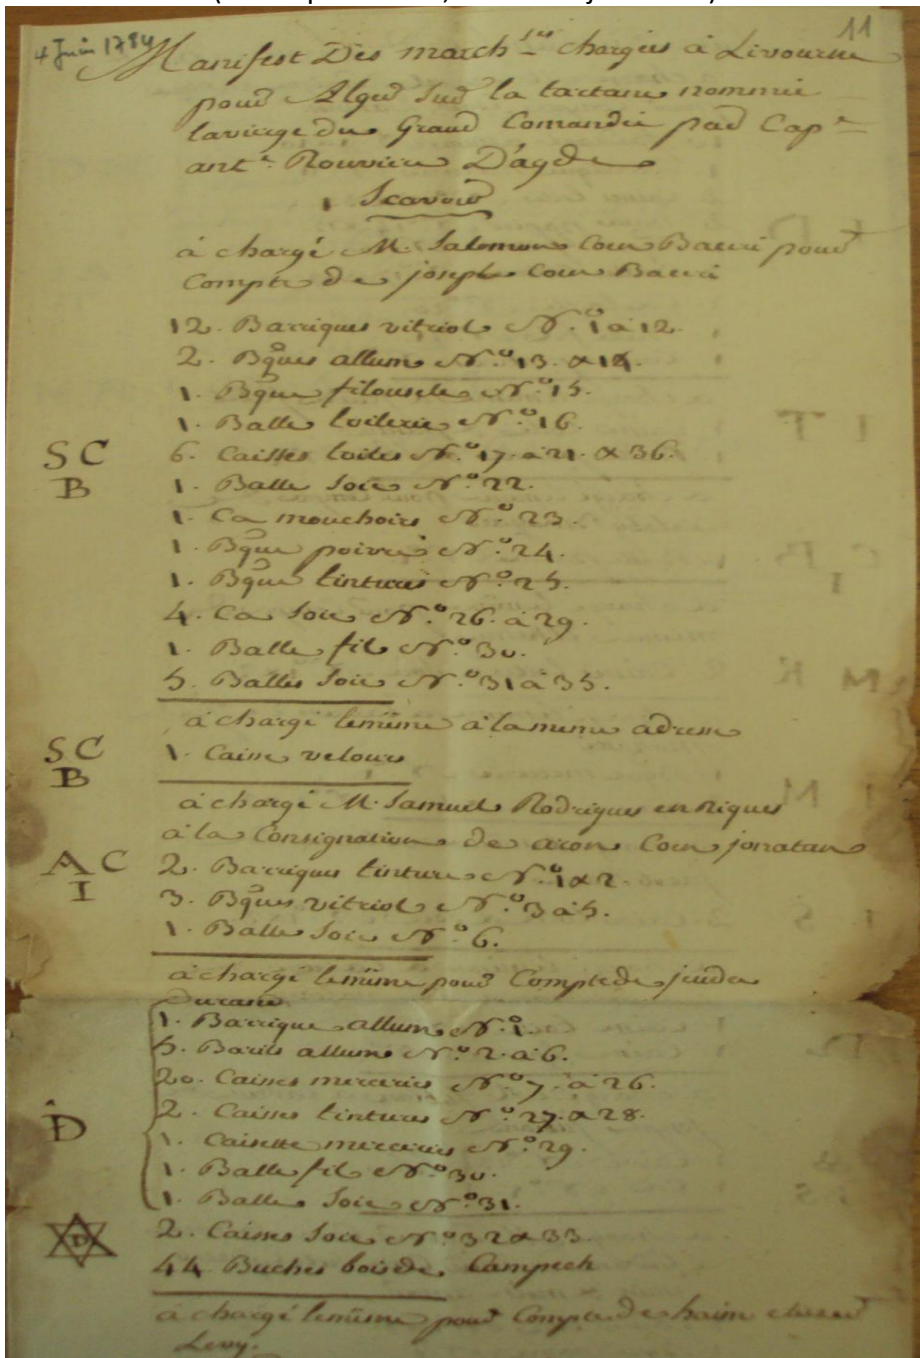 4 Juin 1784
11
Manifest Des march.ses chargées à Livourne
pour Alger sur la tartane nommée
lavierge du Grand Comandée par Cap.e
ant.e Rouvière D'agde
Scavoir
à chargé M. Salomon Coen Bacri pour
Compte de joseph Coen Bacri
12. Barriques vitriol N.o 1 à 12.
2. Bques allum N.o 13. & 14.
1. Bque filouselle N.o 15.
1. Balle toilerie N.o 16.
SC
B
6. Caisses toiles N.o 17. à 21. & 36.
1. Balle Soie N.o 22.
1. Ca mouchoirs N.o 23.
1. Bque poivre N.o 24.
1. Bque tintures N.o 25.
4. Ca Soie N.o 26. à 29.
1. Balle fil N.o 30.
5. Balles Soie N.o 31 à 35.
à chargé lemême à la meme adresse
SC
B
1. Caisse velours
à chargé M. Samuel Rodrigues enRiques
à la Consignation de aron Coen jonatan
AC
I
2. Barriques tinture N.o 1 & 2.
3. Bques vitriol N.o 3 à 5.
1. Balle Soie N.o 6.
à chargé lemême pour Compte de juda
Durand
1. Barrique allum N.o 1.
5. Barils allum N.o 2. à 6.
20. Caisses merceries N.o 7. à 26.
D
2. Caisses tintures N.o 27. & 28.
1. Caisette merceries N.o 29.
1. Balle fil N.o 30.
1. Balle Soie N.o 31.
D
2. Caisses Soie N.o 32 & 33
44 Buches bois de Campech
à chargé lemême pour Compte de haim
Levy.